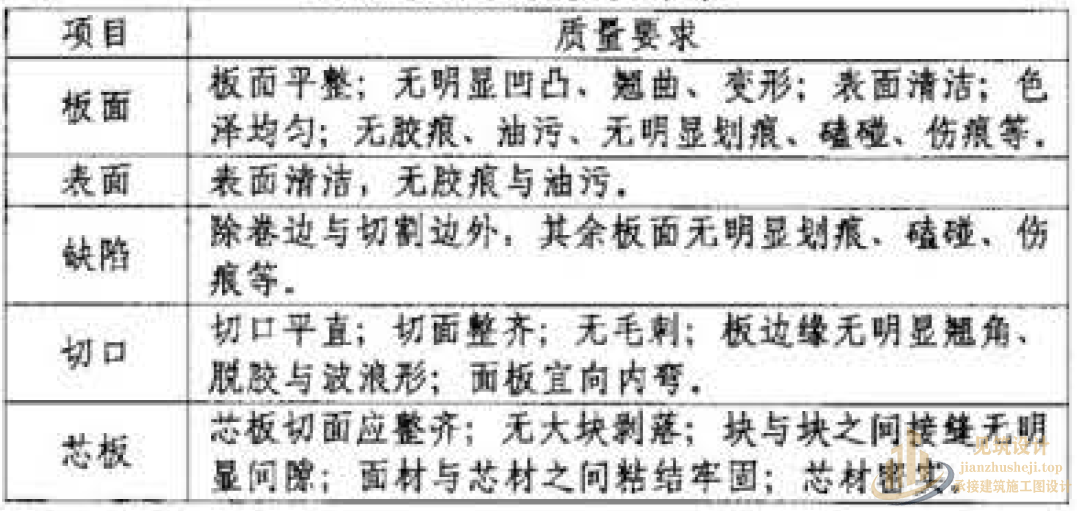 项目
质量要求
板面
板面平整；无明显凹凸、翘曲、变形；表面清洁；色
泽均匀；无胶痕、油污、无明显划痕、磕碰、伤痕等。
表面
表面清洁，无胶痕与油污。
缺陷
除卷边与切割边外，其余板面无明显划痕、磕碰、伤
痕等。
切口
切口平直；切面整齐；无毛刺；板边缘无明显翘角、
脱胶与波浪形；面板宜向内弯。
芯板
芯板切面应整齐；无大块剥落；块与块之间接缝无明
显间隙；面材与芯材之间粘结牢固；芯材密实。
见筑设计
jianzhusheji.top
承接建筑施工图设计